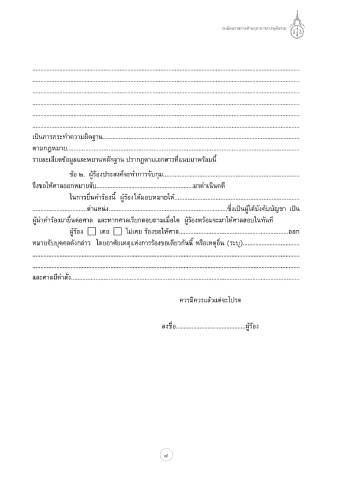 ระเบียบราชการฝ่ายตุลาการศาลยุติธรรม
เป็นการกระทำความผิดฐาน
ตามกฎหมาย
รายละเอียดข้อมูลและพยานหลักฐาน ปรากฏตามเอกสารที่แนบมาพร้อมนี้
ข้อ ๒. ผู้ร้องประสงค์จะทำการจับกุม
จึงขอให้ศาลออกหมายจับ มาดำเนินคดี
ในการยื่นคำร้องนี้ ผู้ร้องได้มอบหมายให้
ตำแหน่ง ซึ่งเป็นผู้ใต้บังคับบัญชา เป็น
ผู้นำคำร้องมายื่นต่อศาล และหากศาลเรียกสอบถามเมื่อใด ผู้ร้องพร้อมจะมาให้ศาลสอบในทันที
ผู้ร้อง เคย ไม่เคย ร้องขอให้ศาล ออก
หมายจับบุคคลดังกล่าว โดยอาศัยเหตุแห่งการร้องขอเดียวกันนี้ หรือเหตุอื่น (ระบุ)
และศาลมีคำสั่ง
ควรมิควรแล้วแต่จะโปรด
ลงชื่อ ผู้ร้อง